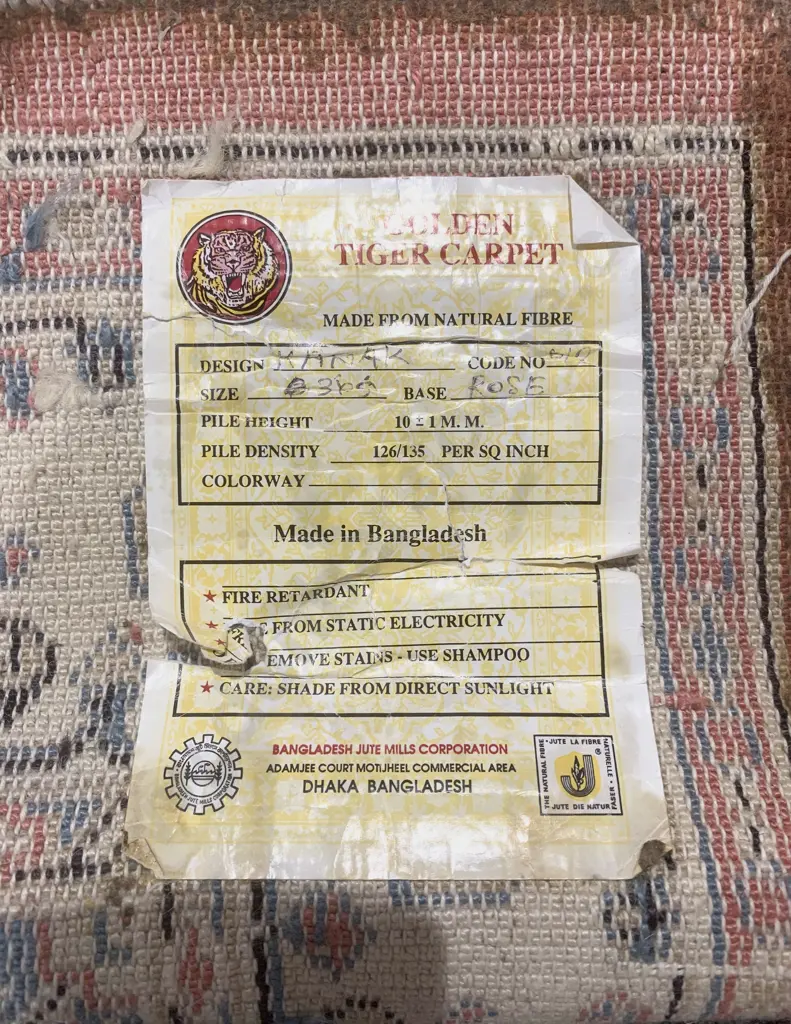 GOLDEN
TIGER CARPET
MADE FROM NATURAL FIBRE
DESIGN CODE NO
SIZE BASE ROSE
PILE HEIGHT 10 ± 1 M. M.
PILE DENSITY 126/135 PER SQ INCH
COLORWAY
Made in Bangladesh
★ FIRE RETARDANT
★ FROM STATIC ELECTRICITY
STAINS - USE SHAMPOO
★ CARE: SHADE FROM DIRECT SUNLIGHT
BANGLADESH JUTE MILLS CORPORATION
ADAMJEE COURT MOTIJHEEL COMMERCIAL AREA
DHAKA BANGLADESH
THE NATURAL FIBRE • JUTE LA FIBRE NATURELLE •
JUTE DIE NATUR FASER •